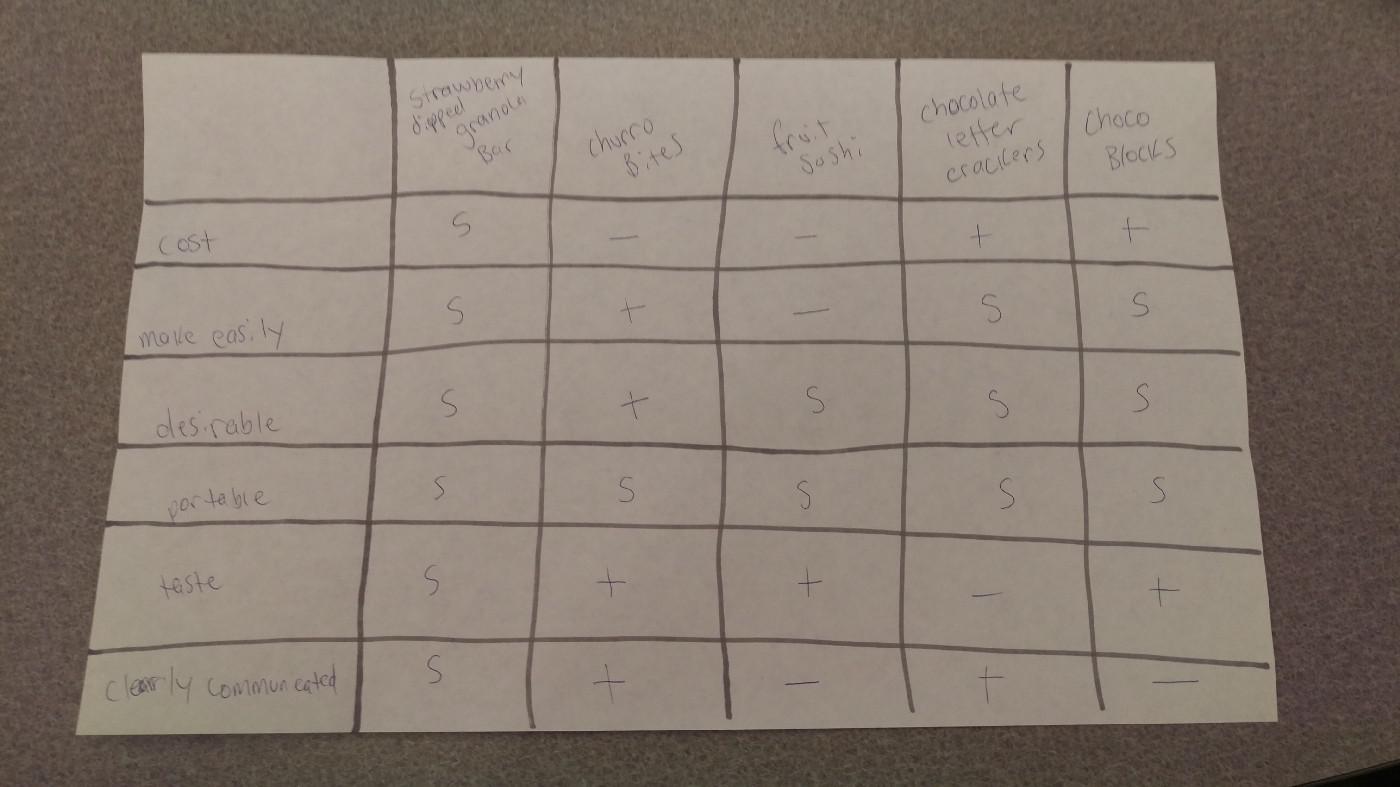 Strawberry
dipped
granola
Bar
churro
Bites
fruit
Sushi
chocolate
letter
crackers
Choco
Blocks
cost S — — + +
make easily S + — S S
desirable S + S S S
portable S S S S S
taste S + + — +
Clearly communcated S + — + —